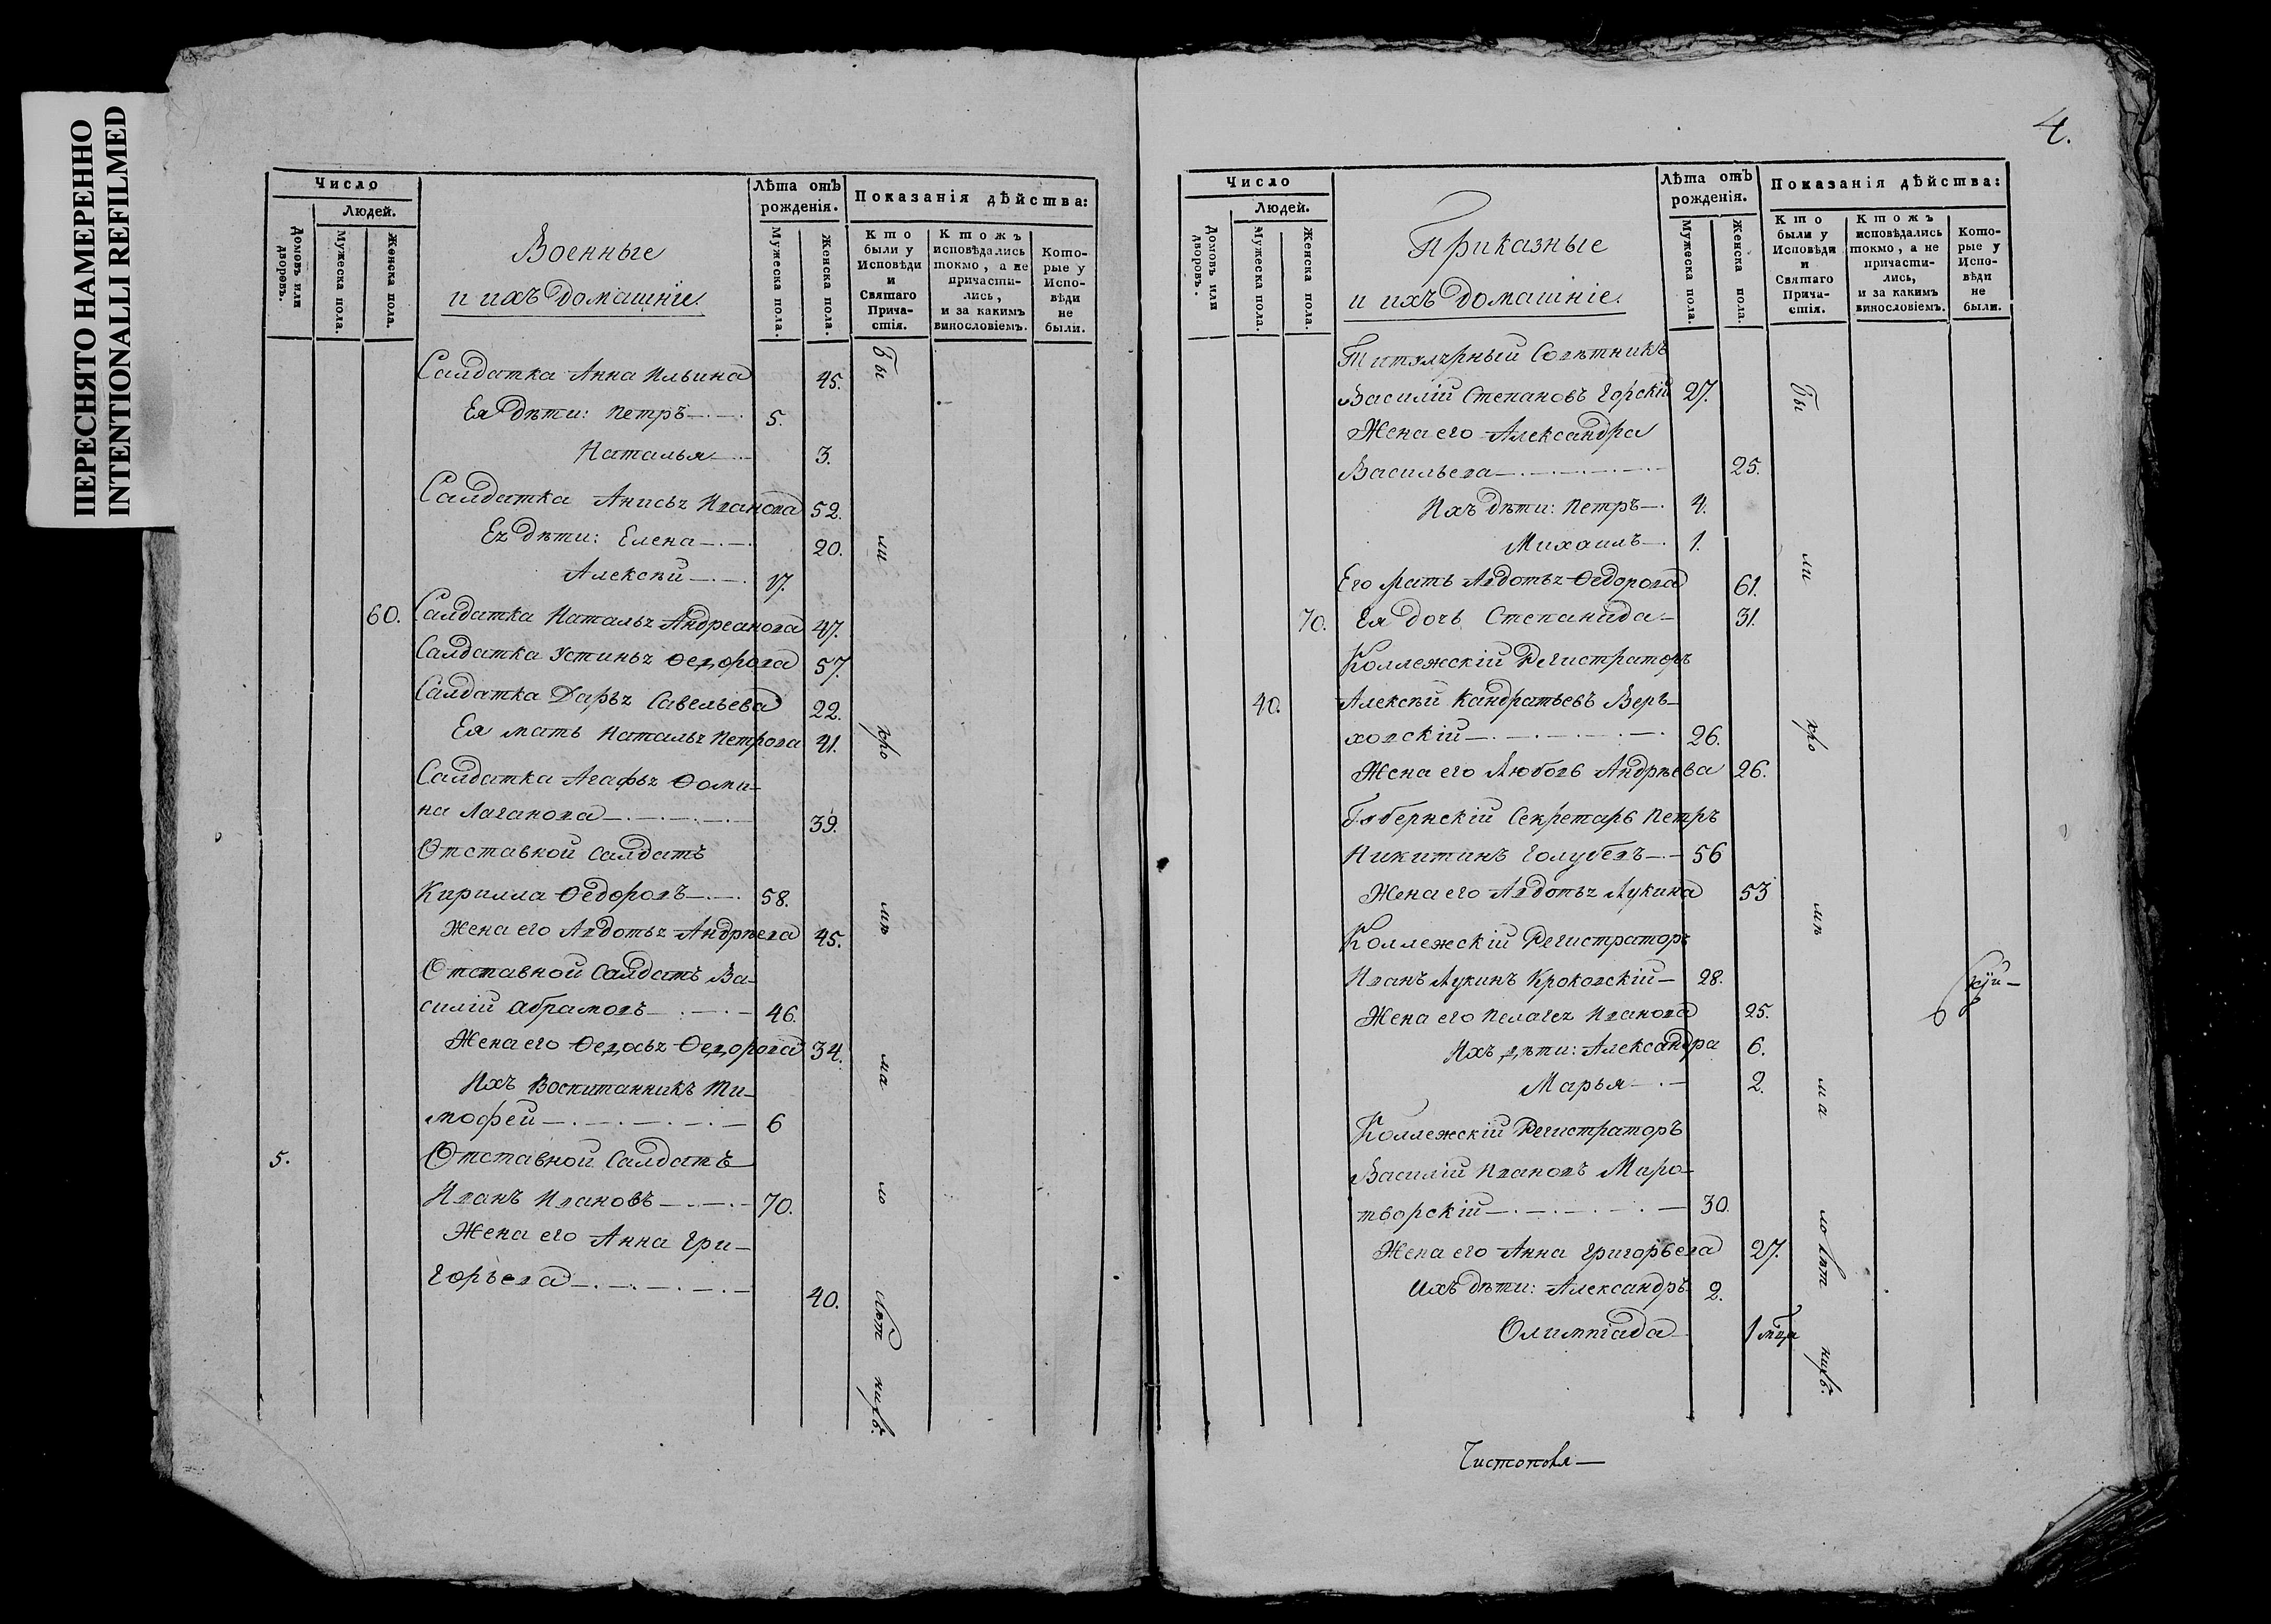 ПЕРЕСНЯТО НАМЕРЕННО
INTENTIONALLI REFILMED
Число
Людей.
Домовъ или дворовъ.
Мужеска пола.
Женска пола.
Военные
и ихъ домашніе.
Лѣта отъ рожденія.
Мужеска пола.
Женска пола.
Показанія дѣйства:
Кто были у Исповѣди и Святаго Причастія.
Ктожъ исповѣдались токмо, а не причастились, и за какимъ винословіемъ.
Которые у Исповѣди не были.
Салдатка Анна Ильина 45.
Ея дѣти: Петръ 5.
Наталья 3.
Салдатка Анисья Иванова 52.
Ея дѣти: Елена 20.
Алексѣй 17.
60. Салдатка Наталья Андреанова 47.
Салдатка Устинья Ѳедорова 57.
Салдатка Дарья Савельева 22.
Ея мать Наталья Петрова 41.
Салдатка Агафья Ѳоми-
на Лаганова 39.
Отставной Салдатъ
Кирилла Ѳедоровъ 58.
Жена его Авдотья Андрѣева 45.
Отставной Салдатъ Ва-
силій Абрамовъ 46.
Жена его Ѳедосья Ѳедорова 34.
Ихъ Воспитанникъ Ти-
мофей 6
5. Отставной Салдатъ
Иванъ Ивановъ 70.
Жена его Анна Гри-
горьева 40.
Бы
ли
хро
мѣ
ма
ло
лѣт
нихъ.
4.
Число
Людей.
Домовъ или дворовъ.
Мужеска пола.
Женска пола.
Приказные
и ихъ домашніе.
Лѣта отъ рожденія.
Мужеска пола.
Женска пола.
Показанія дѣйства:
Кто были у Исповѣди и Святаго Причастія.
Ктожъ исповѣдались токмо, а не причастились, и за какимъ винословіемъ.
Которые у Исповѣди не были.
Титулярный Совѣтникъ
Василій Степановъ Горскій 27.
Жена его Александра
Васильева 25.
Ихъ дѣти: Петръ 4.
Михаилъ 1.
Его мать Авдотья Ѳедорова 61.
70. Ея дочь Степанида 31.
Коллежскій Регистраторъ
40. Алексѣй Кандратьевъ Верь-
ховскій 26.
Жена его Любовь Андрѣева 26.
Губернскій Секретарь Петръ
Никитинъ Голубевъ 56
Жена его Авдотья Лукина 53
Коллежскій Регистраторъ
Иванъ Лукинъ Кроковскій 28.
Жена его Пелагея Иванова 25.
Ихъ дѣти: Александра 6.
Марья 2.
Коллежскій Регистраторъ
Василій Ивановъ Миро-
творскій 30.
Жена его Анна Григорьева 27.
Ихъ дѣти: Александръ 2.
Олимпіада 1
Бы
ли
хро
мѣ
ма
ло лѣт
нихъ.
Чистополя